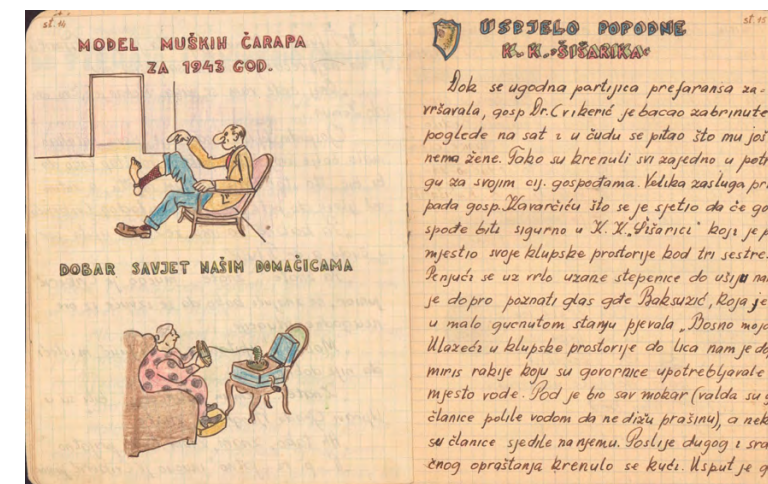 st. 14
MODEL MUŠKIH ČARAPA
ZA 1943 GOD.
DOBAR SAVJET NAŠIM DOMAČICAMA
st. 15
USPJELO POPODNE
K. K. „ŠIŠARIKA“
Dok se ugodna partijica preferansa za-
vršavala, gosp Dr. Cvikerić je bacao zabrinute
poglede na sat i u čudu se pitao što mu još
nema žene. Tako su krenuli svi zajedno u potr
gu za svojim cij. gospođama. Velika zasluga pri
pada gosp. Kavarčiću što se je sjetio da će go
spođe biti sigurno u K. K. „Šišarici“ koji je p
mjestio svoje klupske prostorije kod tri sestre.
Penjući se uz vrlo uzane stepenice do ušiju nam
je dopro poznati glas gđe Baksuzić, koja je
u malo gucnutom stanju pjevala „Bosno moja
Ulazeći u klupske prostorije do lica nam je do
miris rakije koju su govornice upotrebljavale
mjesto vode. Pod je bio sav mokar (valda su g
članice polile vodom da ne dižu prašinu), a nek
su članice sjedile na njemu. Poslije dugog i srd
čnog opraštanja krenulo se kući. Usput je g